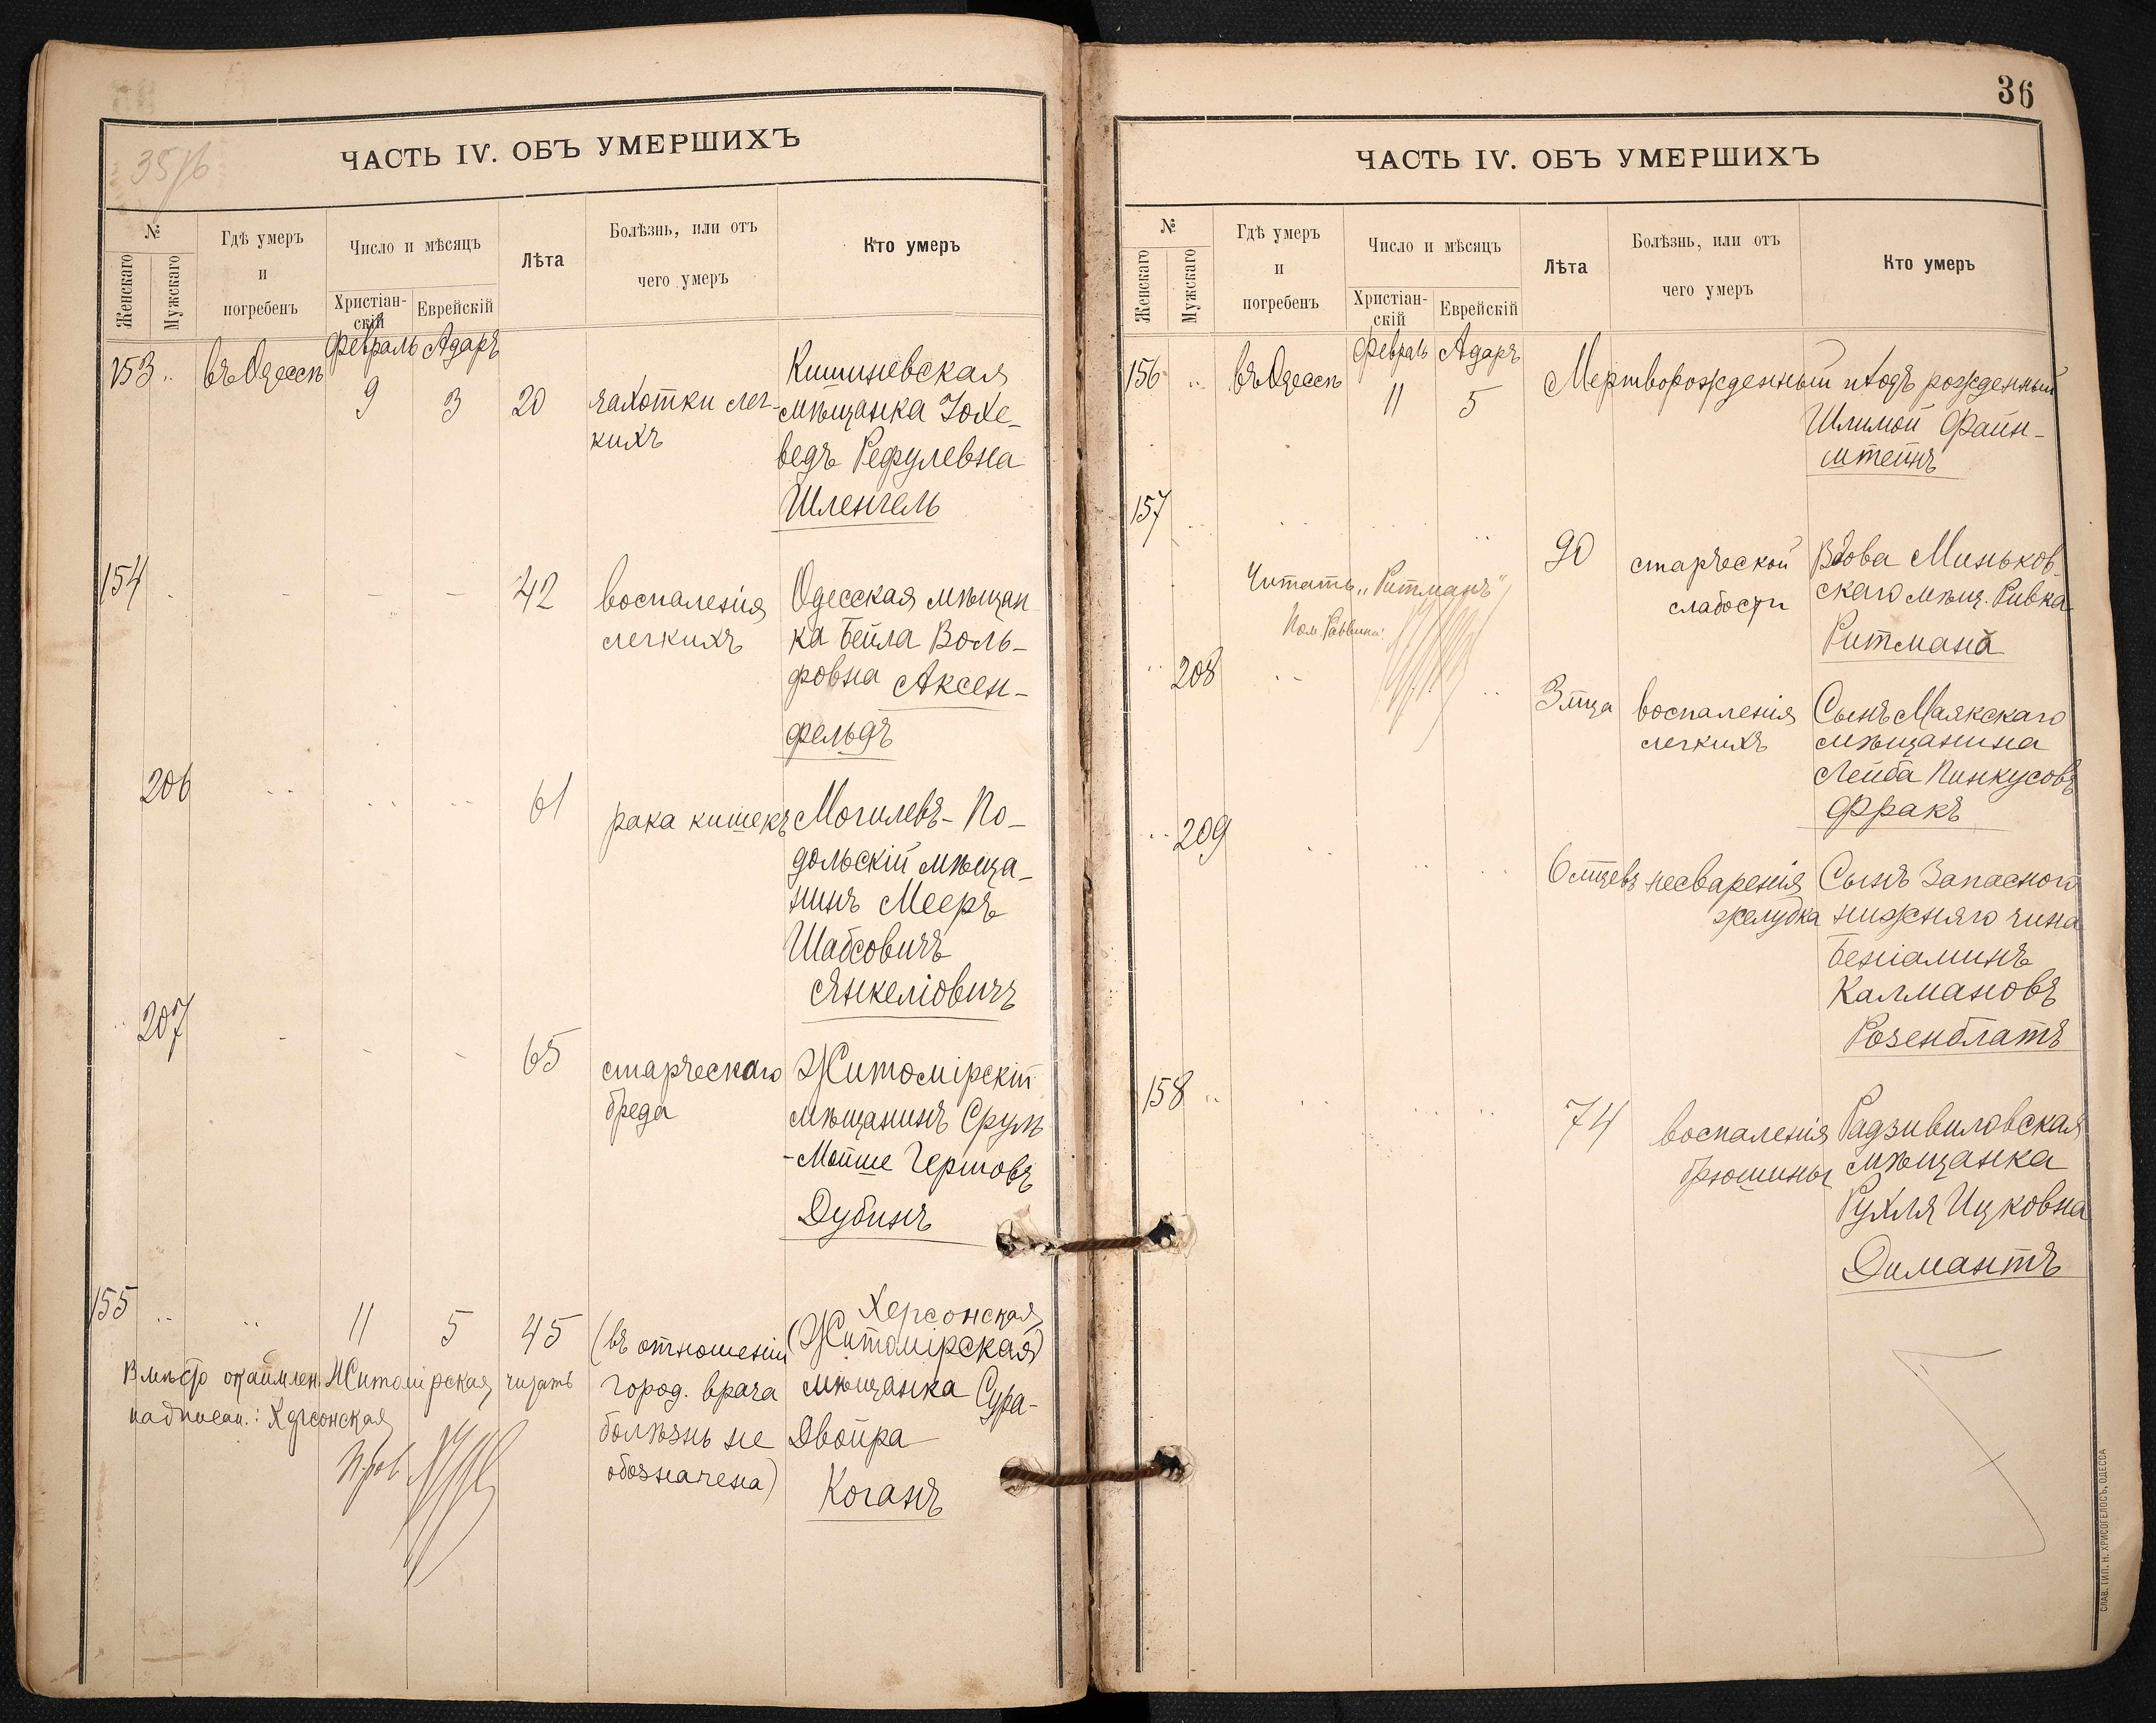 ЧАСТЬ IV. ОБЪ УМЕРШИХЪ
№
Женскаго
Мужскаго
Гдѣ умеръ
и
погребенъ
Число и мѣсяцъ
Христіан-
скій
Еврейскій
Лѣта
Болѣзнь, или отъ
чего умеръ
Кто умеръ
153 ..
въ Одессѣ
Февраль Адаръ
9 3
20
чахотки лег-
кихъ
Кишиневская
мѣщанка Іохе-
ведъ Рефулевна
Шленгель
154
42
воспаленія
легкихъ
Одесская мѣщан-
ка Бейла Воль-
фовна Аксен-
фельдъ
206
61
рака кишекъ
Могилевъ-По-
дольскій мѣща-
нинъ Мееръ
Шабсовичъ
Янкеліовичъ
207
65
старческаго
бреда
Житомірскій
мѣщанинъ Сруль
-Мойше Гершовъ
Дубинъ
155
11 5
45
(въ отношеніи
город. врача
болѣзнь не
обозначена)
Херсонская
(Житомірская)
мѣщанка Сура-
Двойра
Коганъ
Вмѣсто окаймлен. Житомірская, читать
надписан.: Херсонская
36
ЧАСТЬ IV. ОБЪ УМЕРШИХЪ
№
Женскаго
Мужскаго
Гдѣ умеръ
и
погребенъ
Число и мѣсяцъ
Христіан-
скій
Еврейскій
Лѣта
Болѣзнь, или отъ
чего умеръ
Кто умеръ
156 ..
въ Одессѣ
Февраль Адаръ
11 5
Мертворожденный плодъ рожденный
Шлимой Файн-
штейнъ
157
90
старческой
слабости
Вдова Миньков-
скаго мѣщ. Ривка
Ритмана
Читать „Ритманъ"
Пом. Раввина:
208
3 мѣца
воспаленія
легкихъ
Сынъ Маякскаго
мѣщанина
Лейба Пинкусовъ
Фракъ
209
6 мѣцевъ
несваренія
желудка
Сынъ Запасного
нижняго чина
Беніаминъ
Калмановъ
Розенблатъ
158
74
воспаленія
брюшины
Радзивиловская
мѣщанка
Рухля Ицковна
Димантъ
СЛАВ. ТИП. Н. ХРИСОГЕЛОСЪ, ОДЕССА